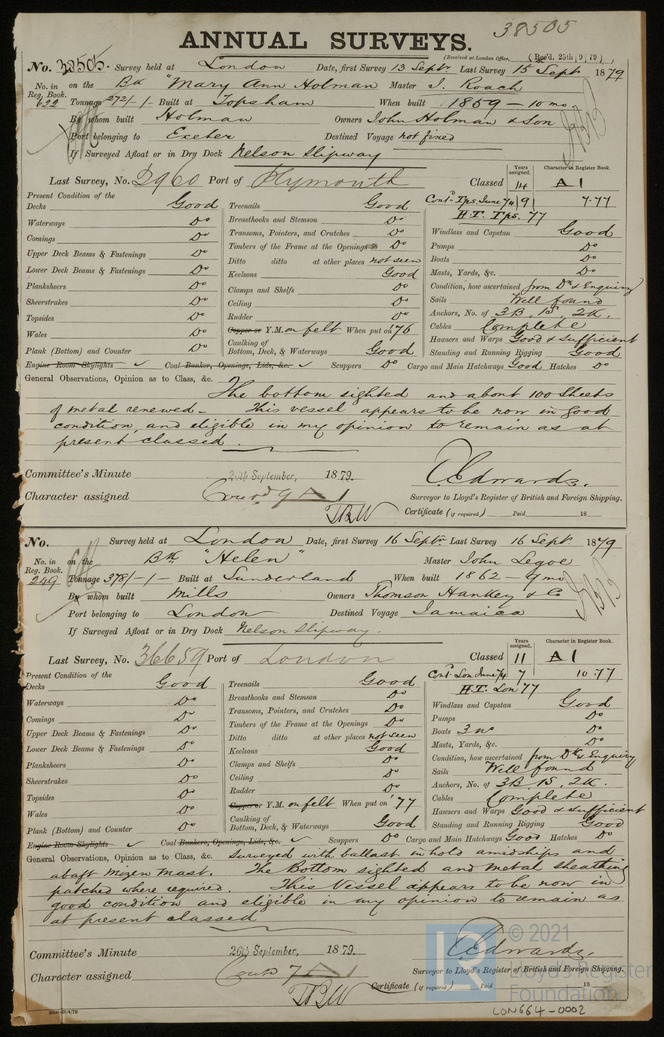 38505
ANNUAL SURVEYS.
(Received at London Office, (Rec'd. 25th 9 79)
No. 38505. Survey held at London Date, first Survey 13 Sept. Last Survey 15 Sept 1879
No. in Reg. Book. 622 on the Bk "Mary Ann Holman" Master J. Roach
Tonnage 272/-1- Built at Topsham When built 1859 - 10 mo
By whom built Holman Owners John Holman & Son
Port belonging to Exeter Destined Voyage not fixed
If Surveyed Afloat or in Dry Dock Nelson Slipway
Last Survey, No. 2960 Port of Plymouth Classed Years assigned. 14 Character in Register Book. A 1
Contd Tps. June 74 9 7.77
H.T. Tps. 77
Present Condition of the
Decks Good Treenails Good Windlass and Capstan Good
Waterways Do Breasthooks and Stemson Do Pumps Do
Comings Do Transoms, Pointers, and Crutches Do Boats Do
Upper Deck Beams & Fastenings Do Timbers of the Frame at the Openings Do Masts, Yards, &c. Do
Lower Deck Beams & Fastenings Do Ditto ditto at other places not seen Condition, how ascertained from Dk & Enquiry
Planksheers Do Keelsons Good Sails Well found
Sheerstrakes Do Clamps and Shelfs Do Anchors, No. of 3B. 1S. 2K.
Topsides Do Ceiling Do Cables Complete
Wales Do Rudder Do Hawsers and Warps Good & Sufficient
Plank (Bottom) and Counter Do Copper or Y.M. on felt When put on '76 Standing and Running Rigging Good
Caulking of Bottom, Deck, & Waterways Good
Engine Room Skylights ✓ Coal Bunker, Openings, Lids, &c. ✓ Scuppers Do Cargo and Main Hatchways Good Hatches Do
General Observations, Opinion as to Class, &c. The bottom sighted and about 100 Sheets
of metal renewed - This vessel appears to be now in good
condition, and eligible in my opinion to remain as at
present classed.
Committee's Minute 26th September, 1879. C Edwards.
Character assigned Contd 9 A 1 Surveyor to Lloyd's Register of British and Foreign Shipping.
TBW Certificate (if required) Paid 18
No. Survey held at London Date, first Survey 16 Sept. Last Survey 16 Sept. 1879
No. in Reg. Book. 249 on the Bk "Helen" Master John Legoe
Tonnage 378/-1- Built at Sunderland When built 1862 9 mo
By whom built Mills Owners Thomson Hankey & Co
Port belonging to London Destined Voyage Jamaica
If Surveyed Afloat or in Dry Dock Nelson Slipway.
Last Survey, No. 36659 Port of London Classed Years assigned. 11 Character in Register Book. A 1
Contd Lon June 74 7 10.77
H.T. Lon 77
Present Condition of the
Decks Good Treenails Good Windlass and Capstan Good
Waterways Do Breasthooks and Stemson Do Pumps Do
Comings Do Transoms, Pointers, and Crutches Do Boats 3 no Do
Upper Deck Beams & Fastenings Do Timbers of the Frame at the Openings Do Masts, Yards, &c. Do
Lower Deck Beams & Fastenings Do Ditto ditto at other places not seen Condition, how ascertained from Dk & Enquiry
Planksheers Do Keelsons Good Sails Well found
Sheerstrakes Do Clamps and Shelfs Do Anchors, No. of 3B. 1S. 2K.
Topsides Do Ceiling Do Cables Complete
Wales Do Rudder Do Hawsers and Warps Good & Sufficient
Plank (Bottom) and Counter Do Copper or Y.M. on felt When put on '77 Standing and Running Rigging Good
Caulking of Bottom, Deck, & Waterways Good
Engine Room Skylights ✓ Coal Bunkers, Openings, Lids, &c. ✓ Scuppers Do Cargo and Main Hatchways Good Hatches Do
General Observations, Opinion as to Class, &c. Surveyed with ballast in hold amidships and
abaft mizen mast. The Bottom sighted and metal sheathing
patched where required. This Vessel appears to be now in
good condition and eligible in my opinion to remain as
at present classed
Committee's Minute 26th September, 1879. C Edwards.
Character assigned Contd 7 A 1 Surveyor to Lloyd's Register of British and Foreign Shipping.
TBW Certificate (if required) Paid 18
© 2021
Lloyd's Register
Foundation
LON664-0002